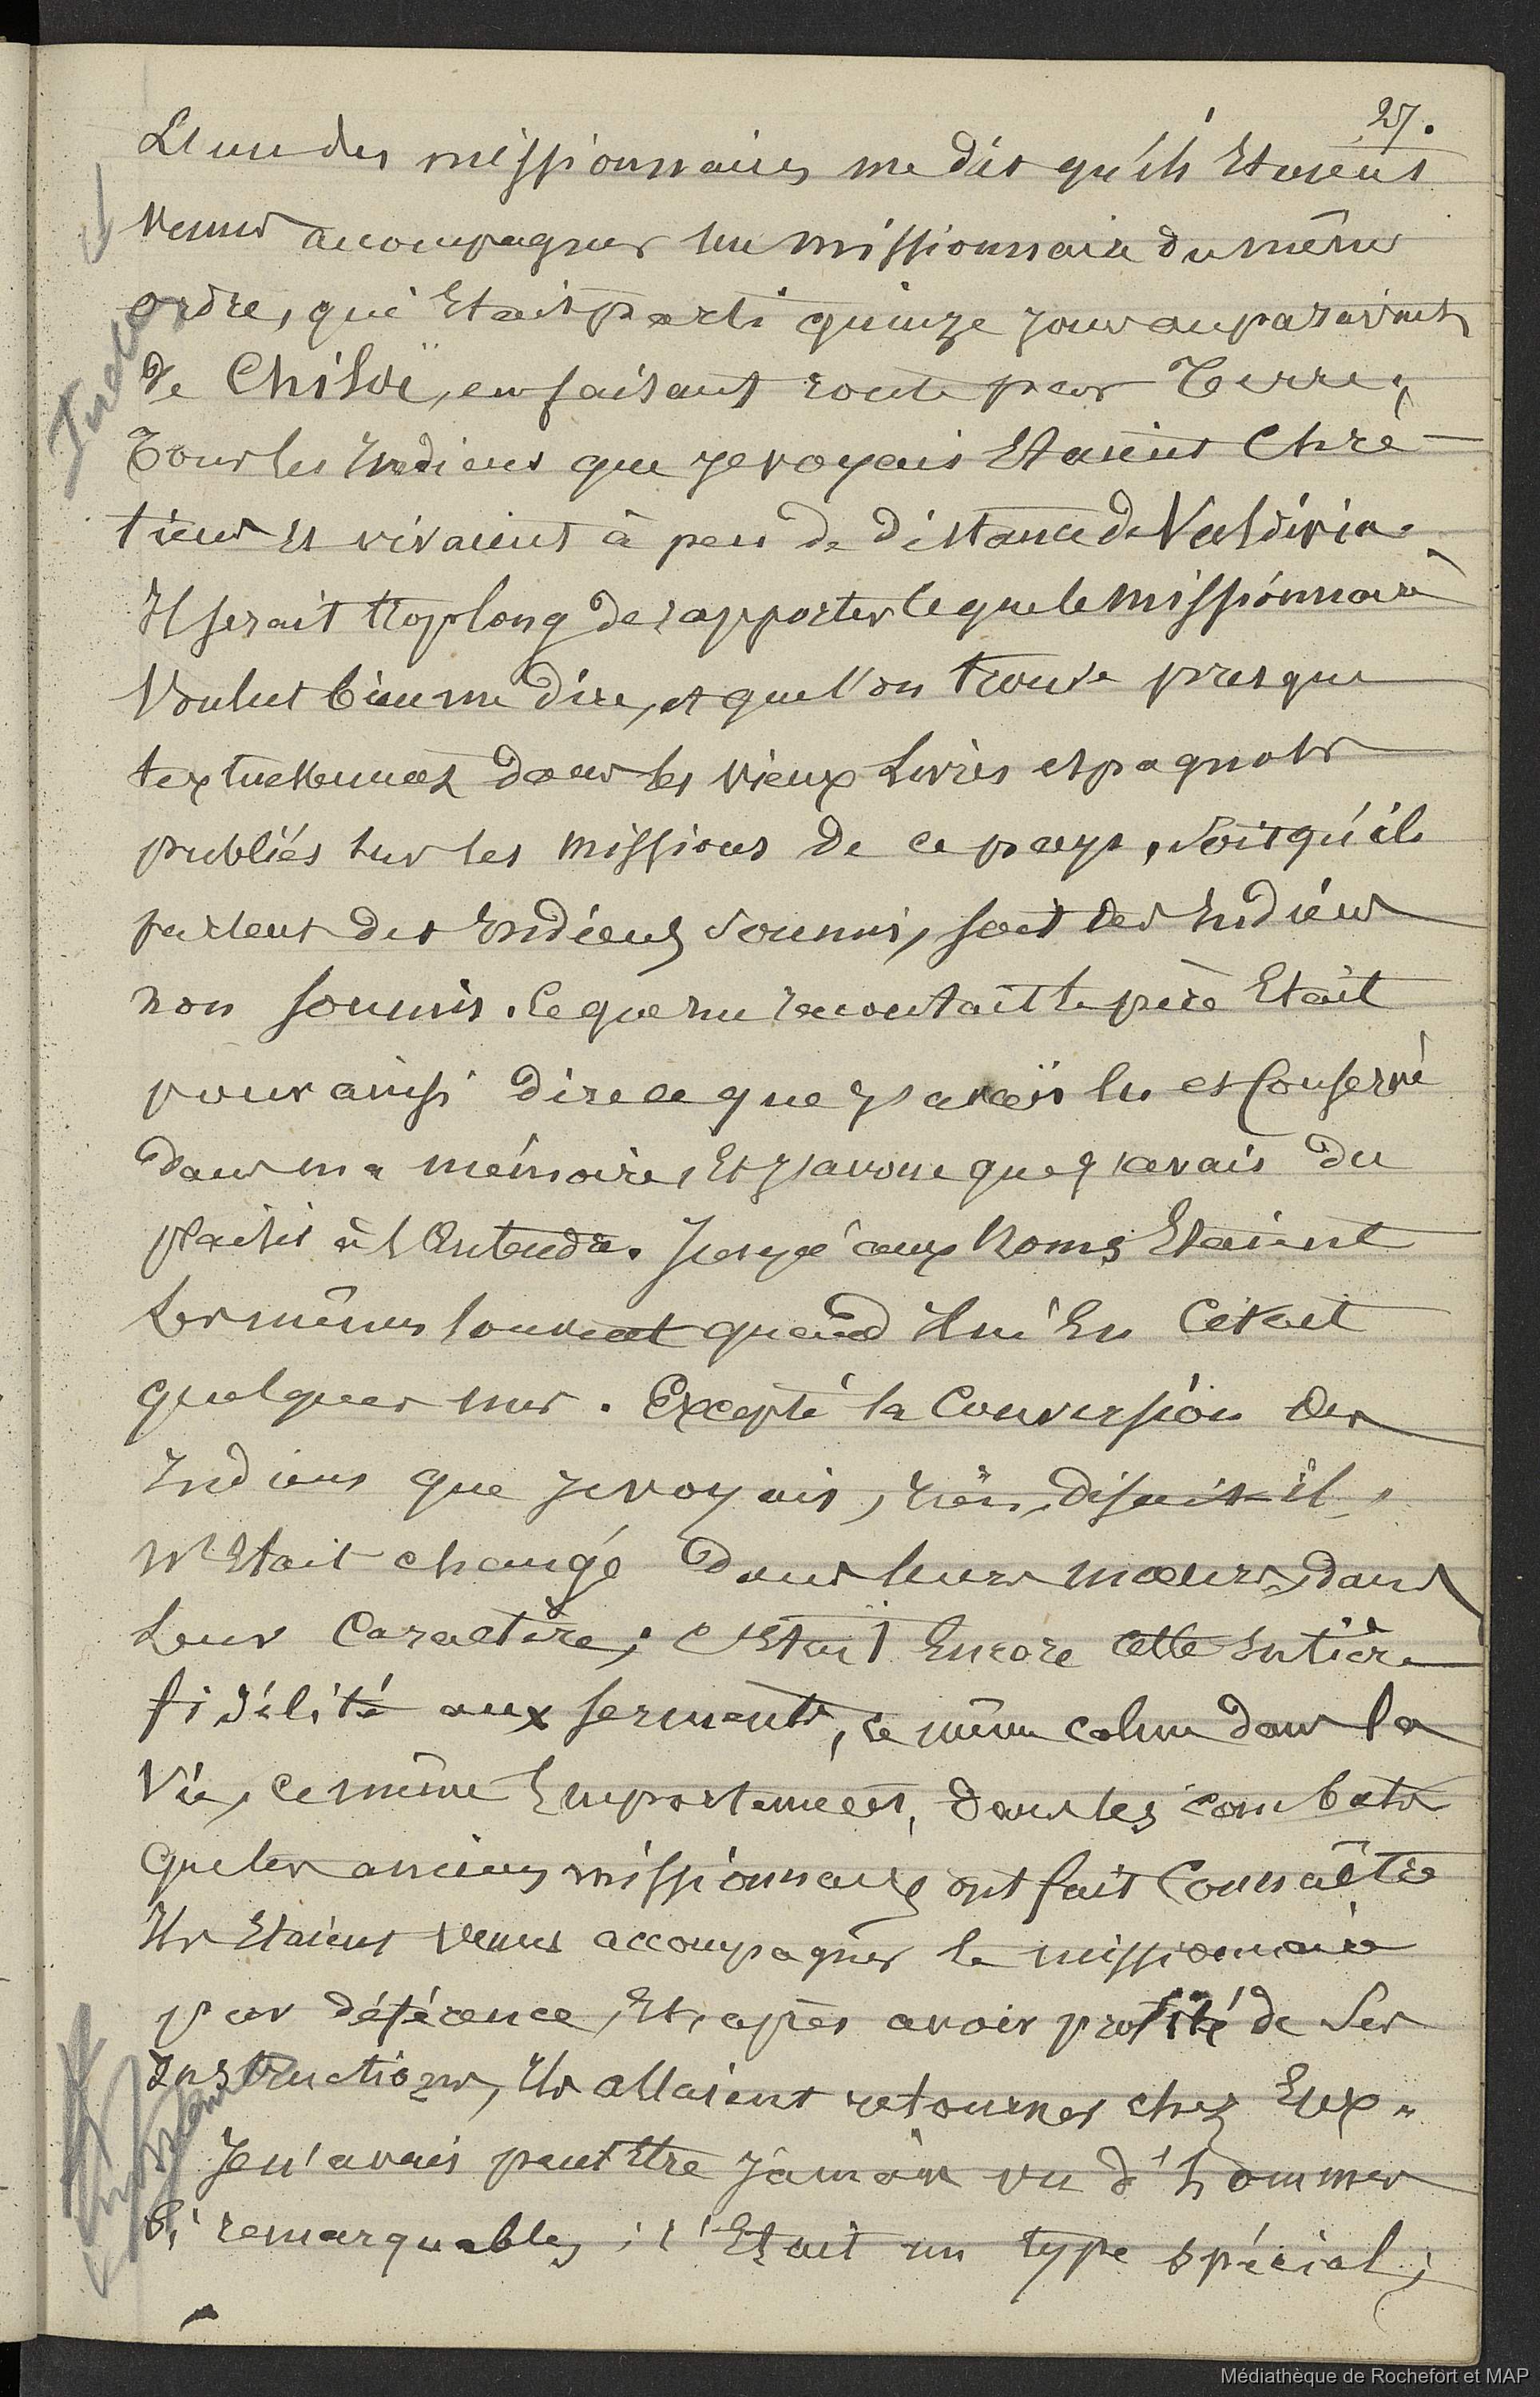 27.
L'un des missionnaires me dit qu'ils Etaient
venus accompagner un missionnaire du même
ordre, qui Etait parti quinze jours auparavant
de Chiloë, en faisant route par Terre;
Tous les Indiens que je voyais Etaient Chré-
tiens et vivaient à peu de distance de Valdivia.
Il serait trop long de rapporter ce que le missionnaire
voulut bien me dire, et que l'on trouve presque
textuellement dans les vieux Livres espagnols
publiés sur les missions de ce pays, soit qu'ils
parlent des Indiens soumis, soit des Indiens
non soumis. Ce que me racontait le père Etait
pour ainsi dire ce que j'avais lu et Conservé
dans ma mémoire, Et j'avoue que j'avais du
plaisir à l'Entendre. Jusqu'aux Noms Etaient
Les mêmes souvent quand il m'En Citait
quelques uns. Excepté la Conversion des
Indiens que je voyais, rien, disait-il,
n'Etait changé dans leurs mœurs, dans
Leur Caractère; C'Etait Encore cette entière
fidélité aux serments, ce même calme dans la
Vie, ce même Emportement, dans les combats
que les anciens missionnaires ont fait Connaître
Ils Etaient venus accompagner le missionnaire
par déférence, Et, après avoir profité de ses
Instructions, Ils allaient retourner chez Eux.
Je n'avais peut Etre jamais vu d'hommes
si remarquables; c'Etait un type spécial;
Médiathèque de Rochefort et MAP